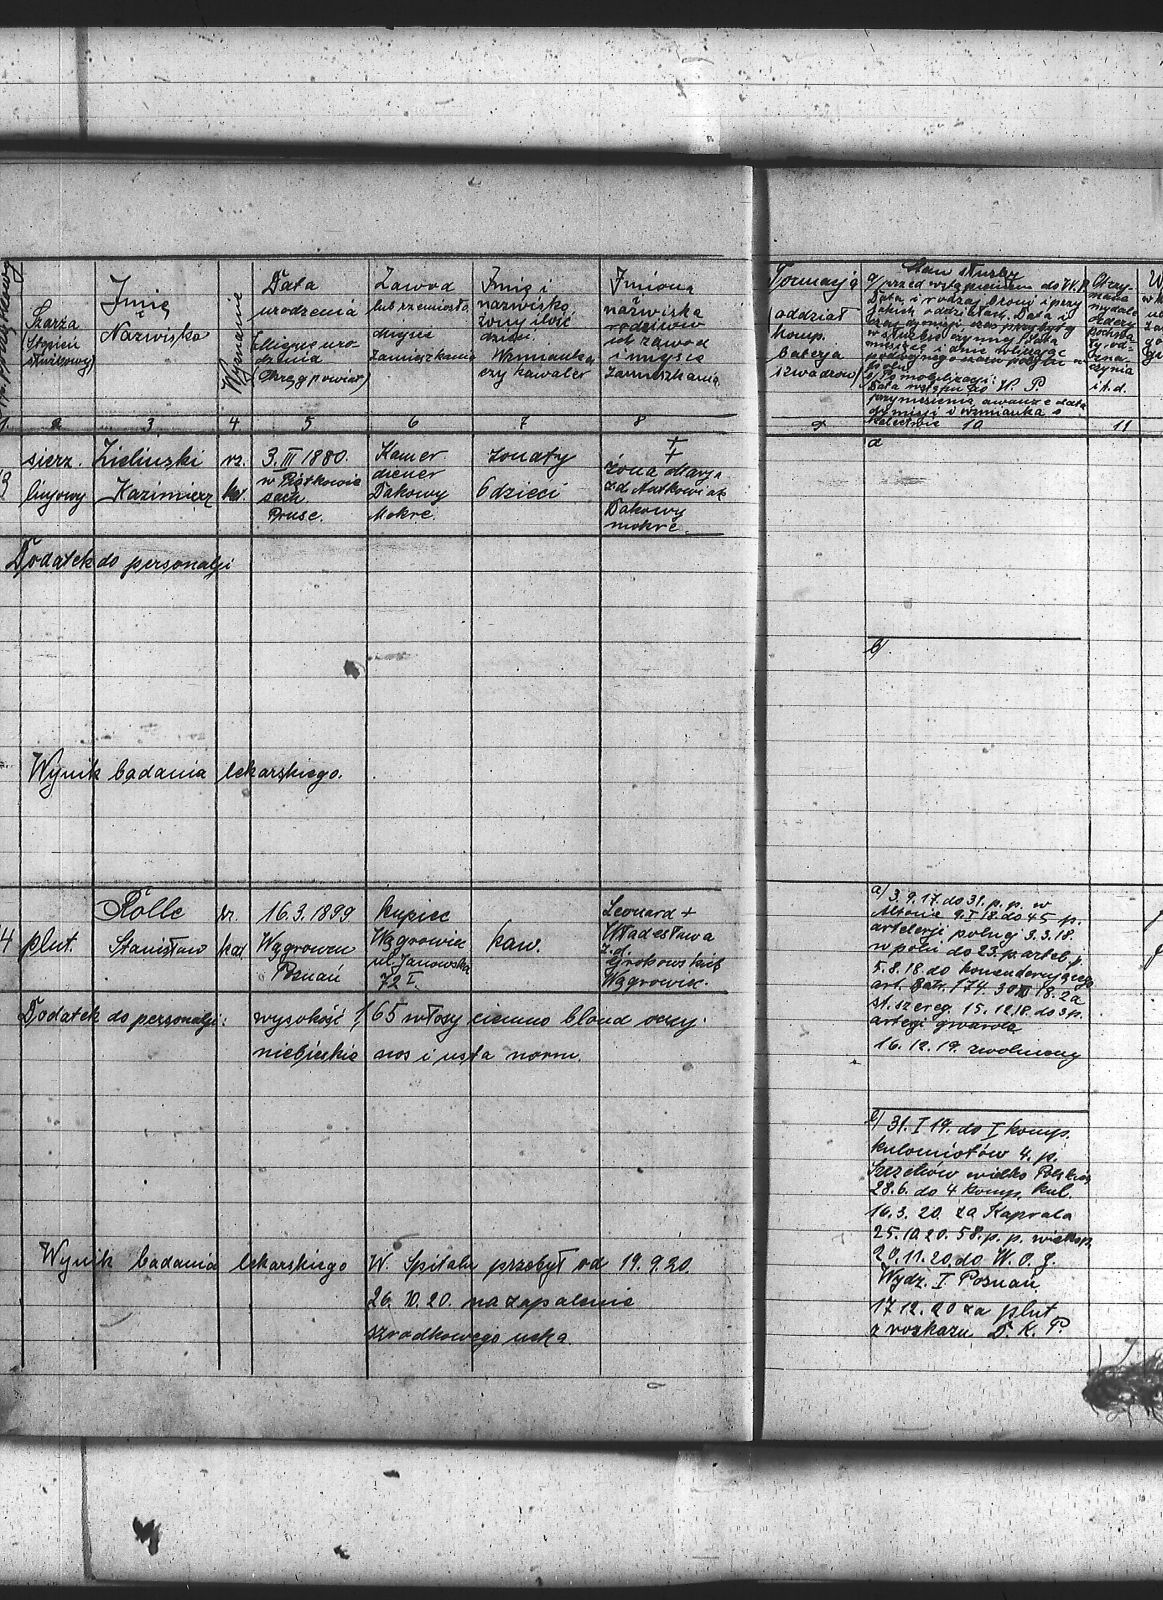 Szarża
(Stopień
służbowy)
Imię
i
Nazwisko
Wyznanie
Data
urodzenia
(Miejsce uro-
dzenia
(Okręg powiat)
Zawód
lub rzemiosło
miejsce
zamieszkania
Imię i
nazwisko
żony ilość
dzieci.
Wzmianka
czy kawaler
Imiona
i
nazwiska
rodziców
ich zawód
i miejsce
zamieszkania
Formacja
(oddział
komp.
baterja
szwadron)
Stan służby
a/ przed wstąpieniem do W.P.
Data i rodzaj broni i przy
jakich oddziałach. Data i
w służbie czynnej
b/ Po mobilizacji:
Data wstąp. do W. P.
przyniesienia, awanse data
dymisji i wzmianka o
i.t.d.
1 2 3 4 5 6 7 8 10 11
3
sierz.
liniowy
Zieliński
Kazimierz
rz.
kat.
3. III 1880.
w Piotkowie
Pruse.
Kamer
diener
Dakowy
Mokre.
żonaty
6 dzieci
+
+
żona Marja
z d. Ratkowiak
Dakowy
mokre.
a
Dodatek do personalji
b/.
Wynik badania lekarskiego.
4
plut.
Rölle
Stanisław
rz.
kat.
16.3.1899
Wągrowcu
Poznań
Kupiec
Wągrowiec
ul. Janowska
72 I.
kaw.
Leonard +
Władesława
z.d.
Wągrowiec.
a/ 3.9.17. do 31. p.p. w
Altonie 9.I 18. do 45 p.
artelerji polnej 3.3.18.
w polu do 23. p. artel. p.
5.8.18. do komenderującego
art. Batr. 174 30 18. za
st. szereg. 15.12.18. do 3 p.
artelji gwardie
16.12.19. zwolniony
Dodatek do personalji: wysokość 1,65 włosy ciemno blond oczy.
niebieskie nos i usta norm.
b/ 31. I 19. do I komp.
kulomiotów 4. p.
Strzelców wielko Polskich
28.6. do 4 komp. kul.
16.3. 20. za Kaprala
25.10.20. 58. p. p. wielkop.
20.11.20. do W. O. G.
Wydz. I Poznań
17.12.20 za plut
z rozkazu D. K. P.
Wynik badania lekarskiego W. Szpitalu przebył od 19.9.20.
26.10.20. na zapalenie
szrodkowego ucha